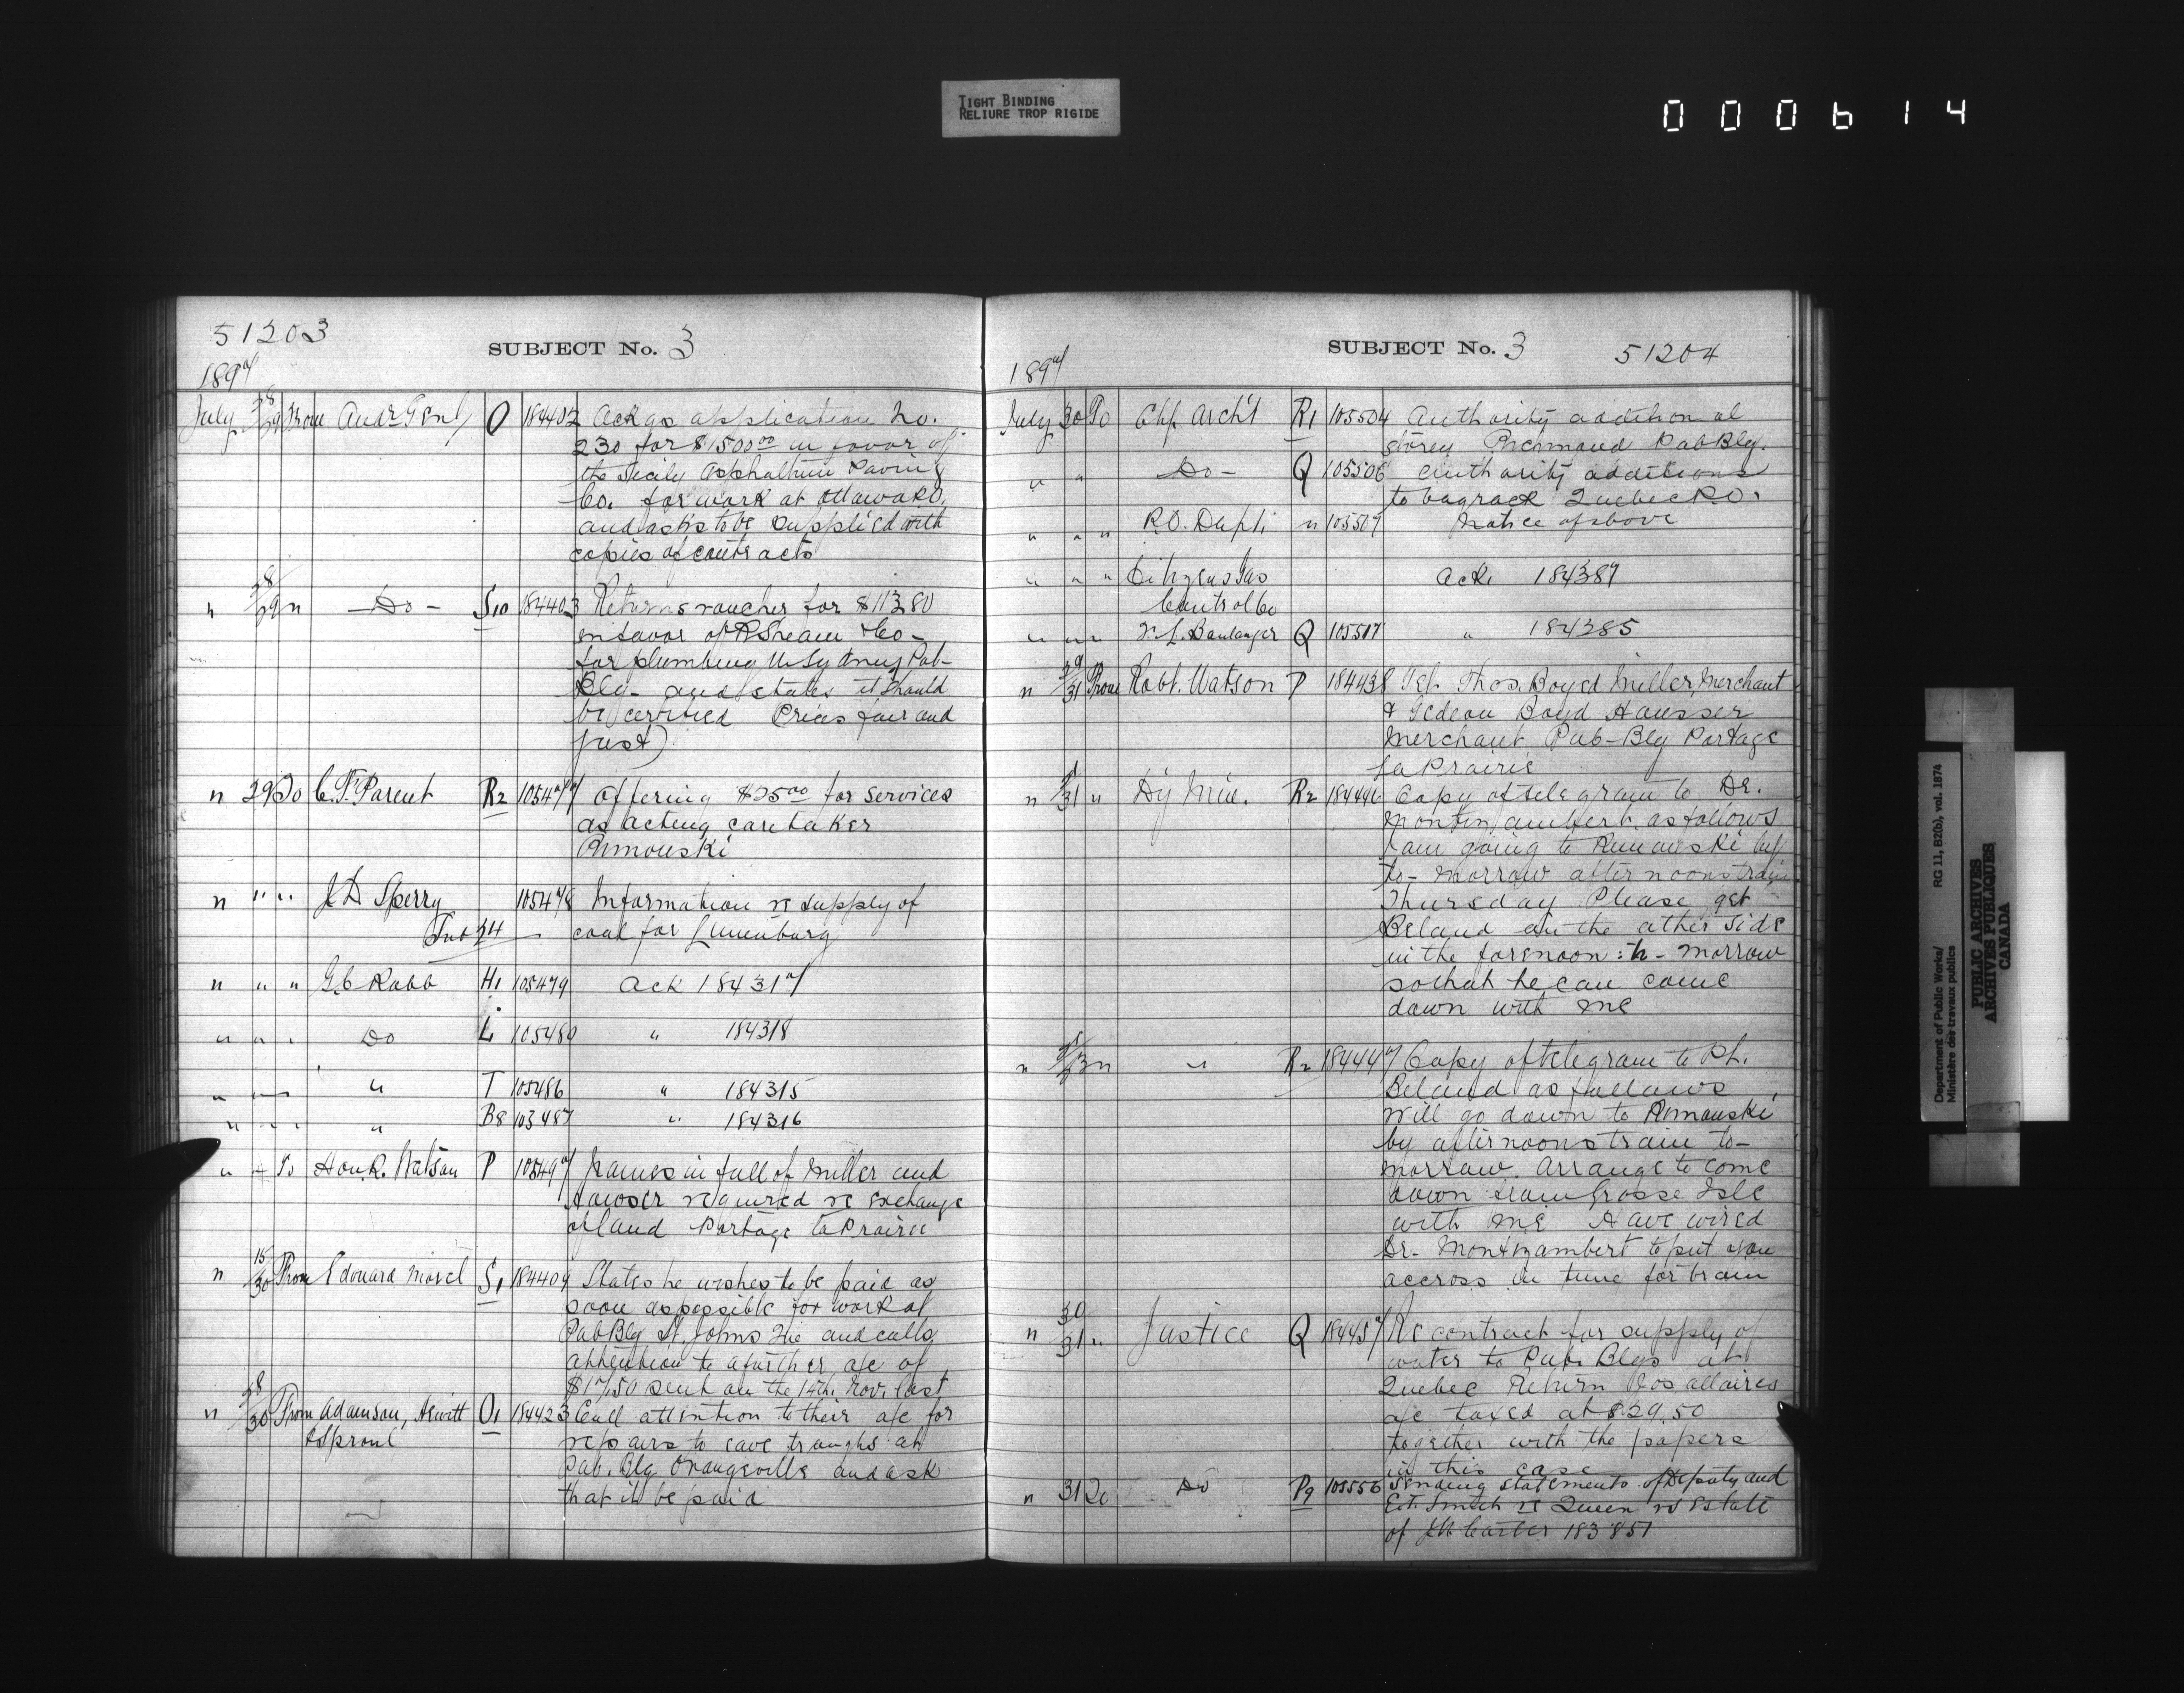 TIGHT BINDING
RELIURE TROP RIGIDE
000614
51203
SUBJECT No. 3
1897
July 28/29 From Audr Genl O 184402 Ackgs application No.
230 for $1500.00 in favor of
the Sicily Asphaltum Paving
Co. for work at Ottawa P.O.
and asks to be supplied with
copies of contracts
" 28/29 " —Do— S10 184403 Returns voucher for $113.80
in favor of & Co—
for plumbing &c Sydney Pub—
Blg— and states it should
be certified (Prices fair and
just)
" 29 To C. F. Parent R2 105477 Offering $25.00 for services
as acting caretaker
Rimouski
" " " J D Sperry 105478 Information re supply of
coal for Lunenburg
" " " G. C Rabb H1 105479 Ack 184317
" " " Do L 105480 " 184318
" " " " T 105486 " 184315
" " " " B8 105487 " 184316
" " To Hon. R. Watson P 105497 Names in full of Miller and
Hausser required re exchange
of land Portage la Prairie
" 15/30 From Edouard Morel S1 184409 States he wishes to be paid as
soon as possible for work at
Pub Blg St. Johns Que and calls
attention to a further a/c of
$17.50 sent on the 14th. Nov. last
" 28/30 From Adamson, Hewitt O1 184423 Call attention to their a/c for
& Sproul
repairs to eave troughs at
Pub. Blg Orangeville and ask
that it be paid
SUBJECT No. 3
51204
1897
July 30 To Chf. Arch't R1 105504 Authority additional
storey Richmond Pub Blg.
" " —Do— Q 105506 Authority additions
to bagrack Quebec P.O.
" " " P.O. Dept. " 105507 Notice of above
" " " Citizens Gas
Control Co
Ack. 184387
" " " Boulanger Q 105517 " 184385
" 29/31 From Robt. Watson P 184438 Tel. Thos. Boyd Miller, Merchant
& Gedeon Boyd Hausser
Merchant Pub—Blg Portage
la Prairie
" 31 " Dy Min. R2 184446 Copy of telegram to Dr.
Montizambert as follows
I am going to Rimouski by
to-morrow afternoons train
Thursday Please get
Beland on the other side
in the forenoon to-morrow
so that he can come
down with me
" " " R2 184447 Copy of telegram to Ph.
Beland as follows
Will go down to Rimouski
by afternoons train to-
morrow. Arrange to come
down from Grosse Isle
with me. Have wired
Dr. Montizambert to put you
accross in time for train
" 30/31 " Justice Q 184457 Re contract for supply of
water to Pub. Blgs at
Quebec Return Jos allaires
a/c taxed at $29.50
together with the papers
in this case
" 31 To Do P9 105556 Sending statements of Deputy and
Smith re Queen vs Estate
of Carter 183851
Department of Public Works/
Ministère des travaux publics
RG 11, B2(b), vol. 1874
PUBLIC ARCHIVES
ARCHIVES PUBLIQUES
CANADA